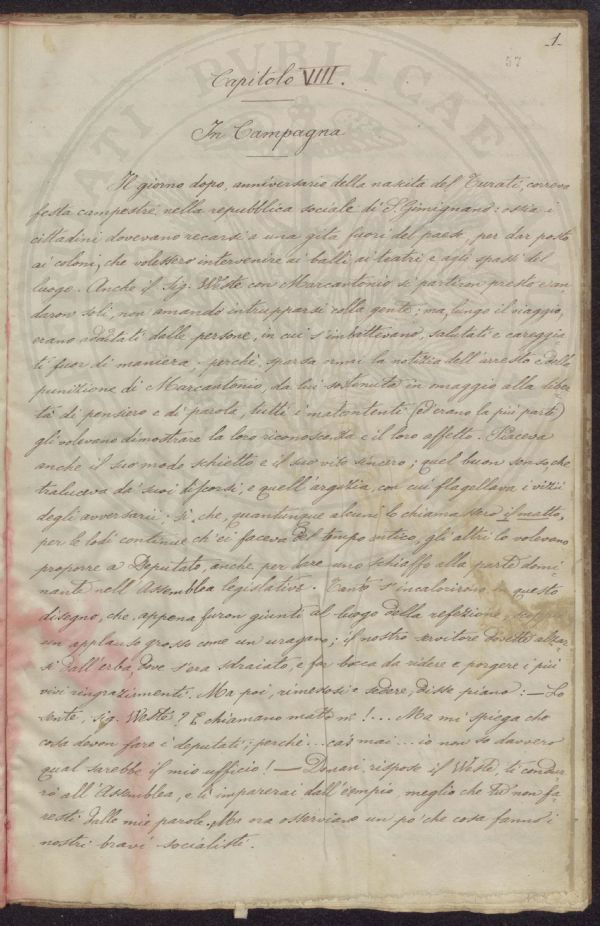 1.
57
Capitolo VIII.
In Campagna
Il giorno dopo, anniversario della nascita del Turati, correva
festa campestre nella repubblica sociale di S. Gimignano: ossia i
cittadini dovevano recarsi a una gita fuori del paese, per dar posto
ai coloni, che volessero intervenire ai balli ai teatri e agli spassi del
luogo. Anche il Sig. Weste con Marcantonio si partiron presto e an
daron soli, non amando intrupparsi colla gente; ma, lungo il viaggio,
erano adocchiati dalle persone, in cui s'imbattevano, salutati e careggia-
ti fuor di maniera, perchè, sparsa ormai la notizia dell'arresto e della
punizione di Marcantonio, da lui sostenuta in omaggio alla liber
tà di pensiero e di parola, tutti i malcontenti (ed erano la più parte)
gli volevano dimostrare la loro riconoscenza e il loro affetto. Piaceva
anche il suo modo schietto e il suo viso sincero; quel buon senso che
traluceva da' suoi discorsi, e quell'arguzia, con cui flagellava i vizii
degli avversarii. Sì che, quantunque alcuni lo chiamassero il matto,
per le lodi continue ch'ei faceva del tempo antico, gli altri lo volevano
proporre a Deputato, anche per dare uno schiaffo alla parte domi
nante nell'Assemblea legislativa. Tanto s'incalorirono in questo
disegno, che, appena furon giunti al luogo della refezione, scoppiò
un applauso grosso come un uragano; il nostro servitore dovette alzar-
si dall'erba, dove s'era sdraiato, e far bocca da ridere e porgere i più
vivi ringraziamenti. Ma poi, rimessosi a sedere, disse piano: — Lo
sente, sig. Weste? E chiamano matto me!... Ma mi spiega che
cosa devon fare i deputati; perchè... casomai... io non so davvero
qual sarebbe il mio ufficio! — Domani, rispose il Weste, ti condur
rò all'Assemblea, e lì imparerai dall'esempio meglio che tu non fa-
resti dalle mie parole. Ma ora osserviamo un po' che cosa fanno i
nostri bravi socialisti.